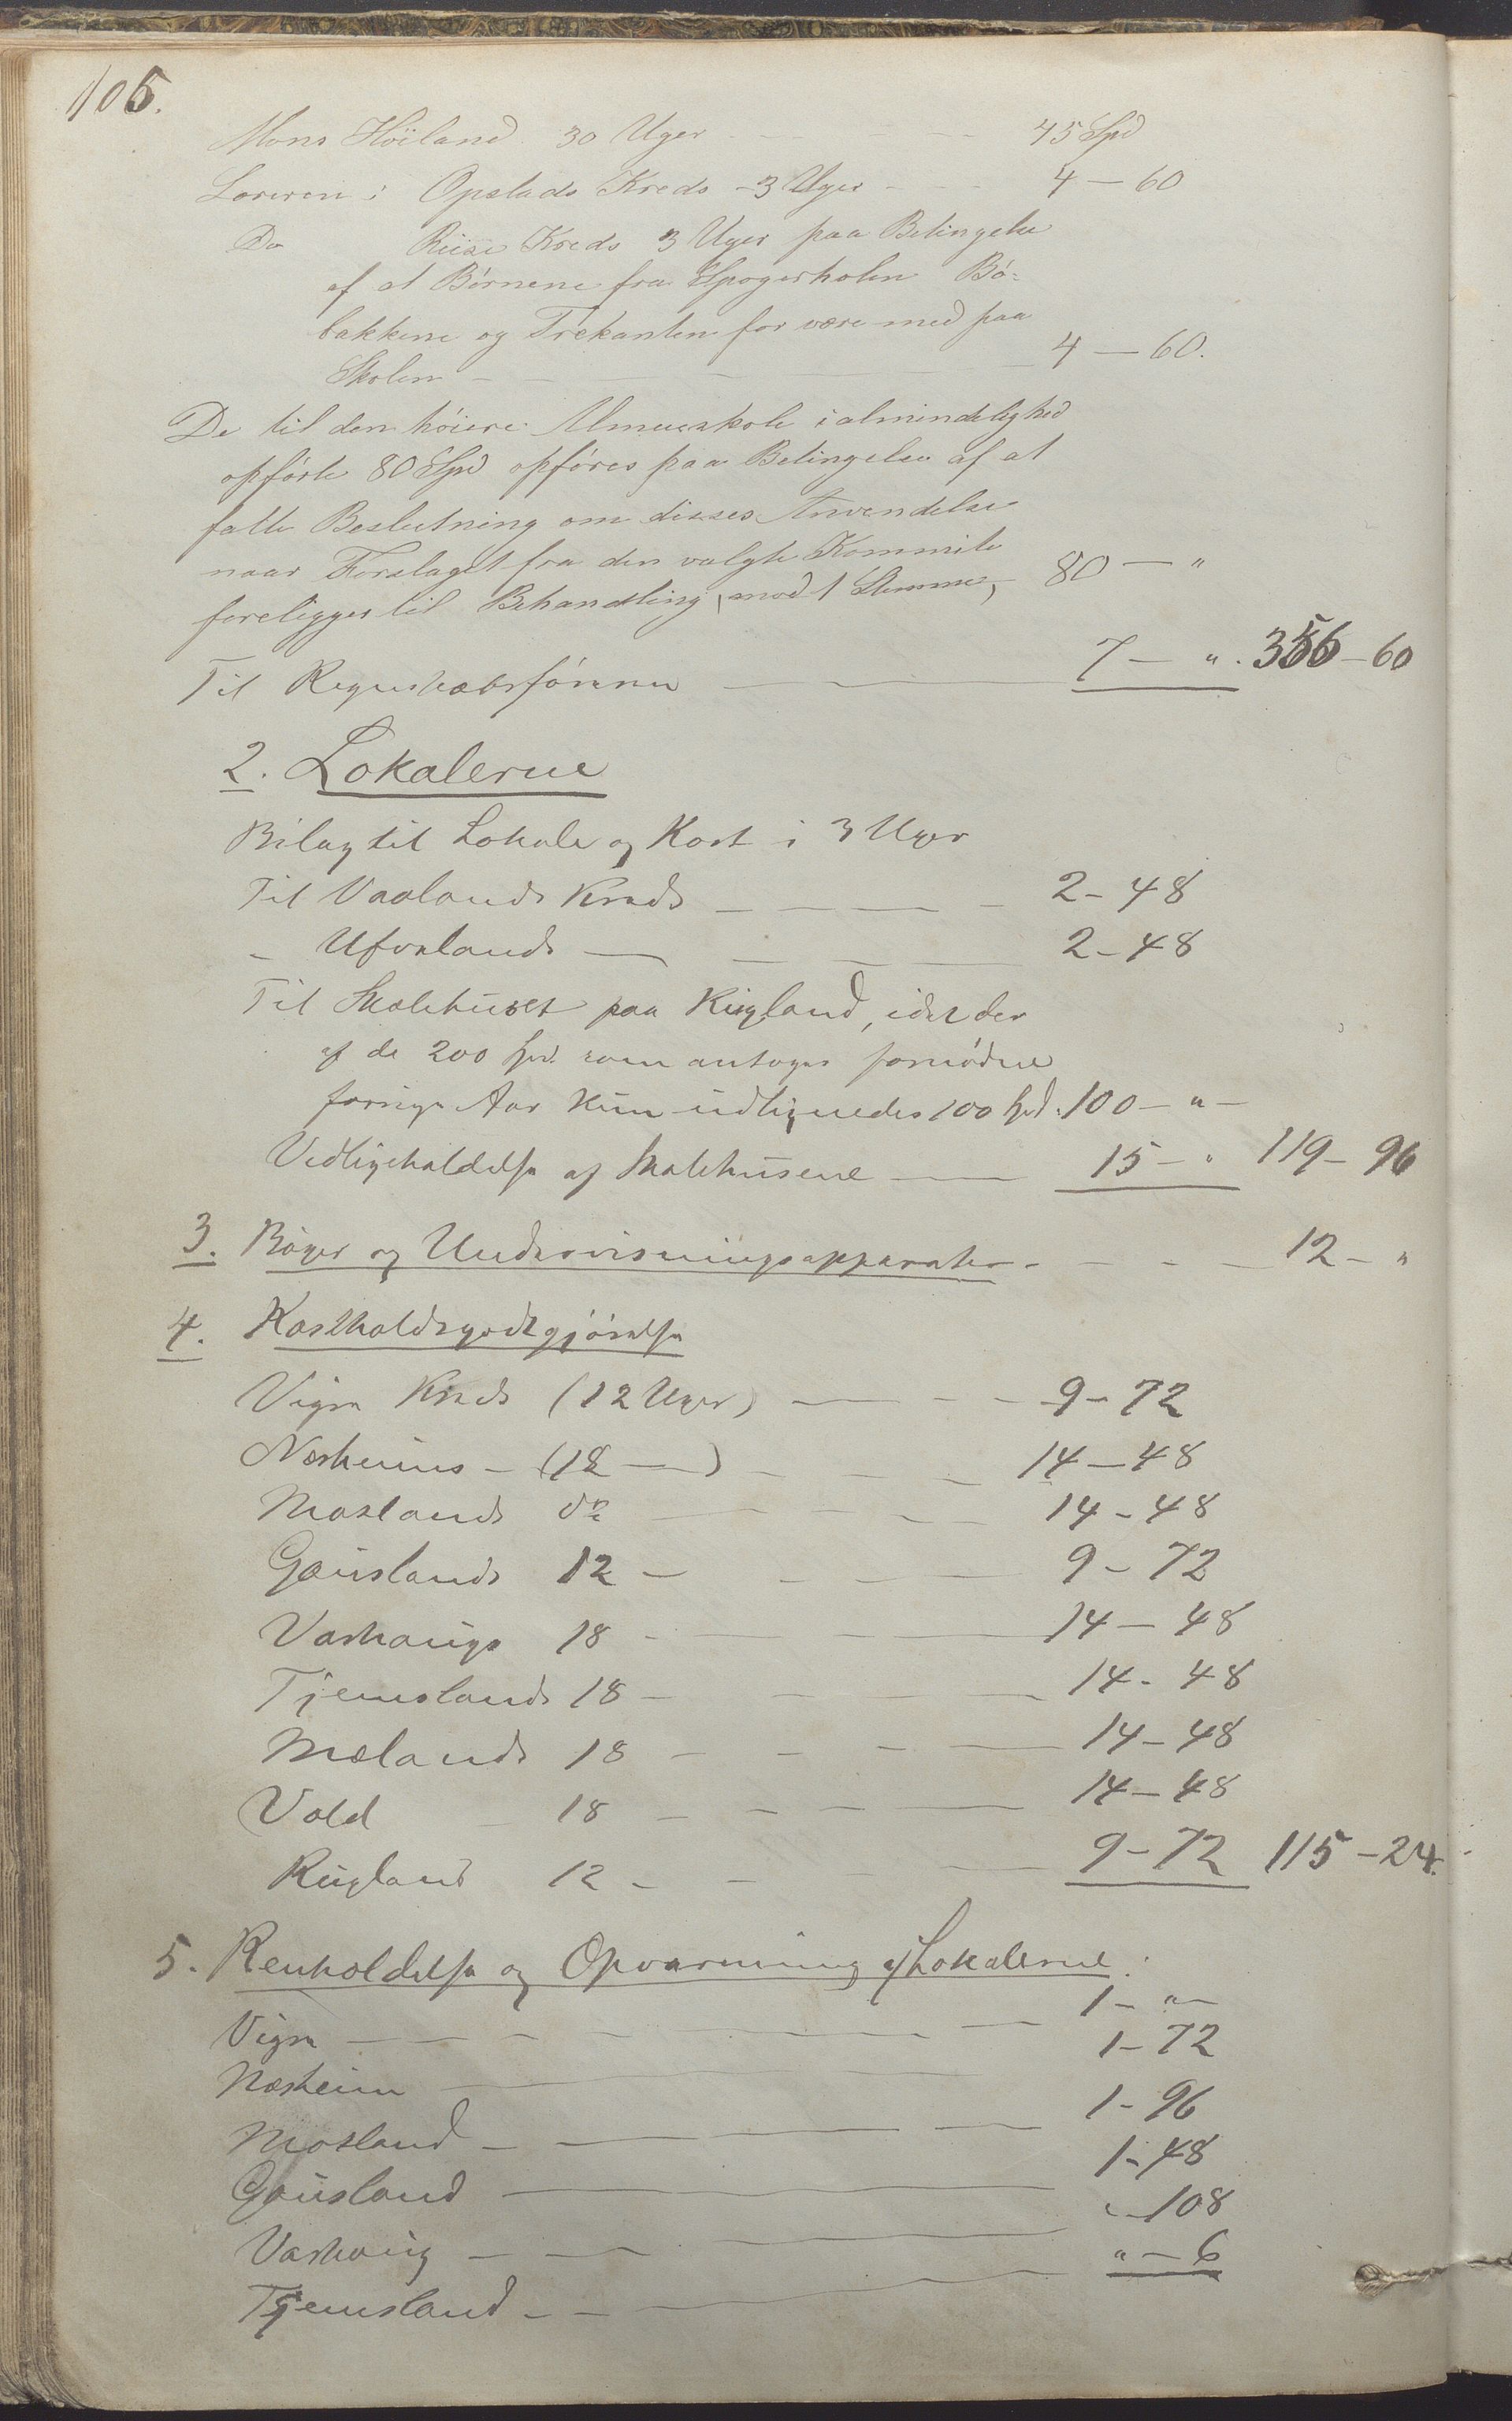 105.
Mons Höiland 30 Uger - - - 45 Spd
Læreren i Opstads Kreds - 3 Uger - - 4 - 60
Do Riise Kreds 3 Uger paa Betingelse
af at Börnene fra Spogerholen Bö-
bakkene og Trekanten for være med paa
Skolen - - - - - 4 - 60.
De til den höiere Almueskole i almindelighed
opförte 80 Spd opföres paa Betingelse af at
fatte Beslutning om disses Anvendelse
naar Forslaget fra den valgte Kommite
foreligger til Behandling, mod 1 Stemme, 80 - "
Til Regnskabsföreren - - 7 - " . 356 - 60
2. Lokalerne
Bilag til Lokale og Kost i 3 Uger
Til Vaalands Kreds - - - - 2 - 48
- Ufvalands - - - - 2 - 48
Til Skolehuset paa Kirgland, idet der
af de 200 Spd. som antoges fornödne
forrige Aar kun udlignedes 100 Spd. 100 - " -
Vedligeholdelse af Skolehusene - 15 - " 119 - 96
3. Böger og Undervisningsapparater - - - - 12 - "
4. Kostholdsgodtgjörelse
Vigre Kreds (12 Uger) - - - 9 - 72
Næsheims - (18 - ) - - - 14 - 48
Motlands do - - - - 14 - 48
Gauslands 12 - - - - 9 - 72
Varhaugs 18 - - - - 14 - 48
Tjemslands 18 - - - 14 - 48
Mælands 18 - - - - 14 - 48
Vold - 18 - - - - 14 - 48
Kirgland 12 - - - 9 - 72 115 - 24.
5. Renholdelse og Opvarmning af Lokalerne:
Vigre - - - - - 1 - " -
Næsheim - - 1 - 72
Motland - - - - 1 - 96
Gausland - - 1 - 48
Varhaug - - - " - 108
Tjemsland - - - " - 6